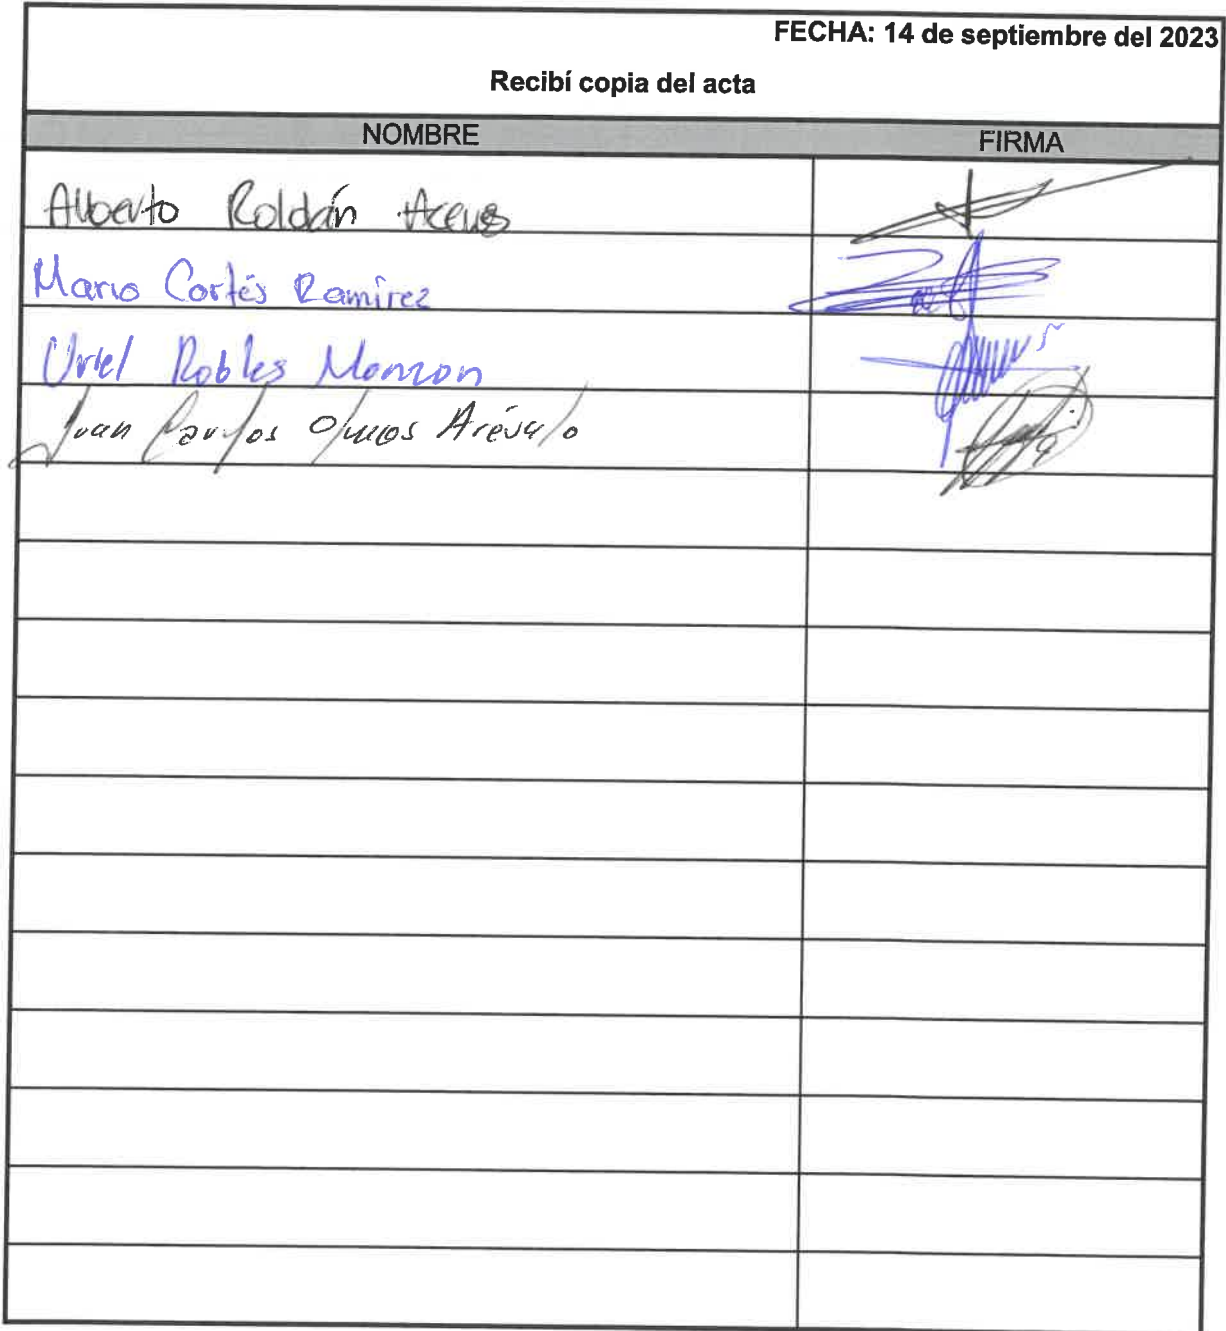 FECHA: 14 de septiembre del 2023
Recibí copia del acta
NOMBRE FIRMA
Alberto Roldán
Mario Cortés Ramírez
Uriel Robles Monzon
Juan Carlos Olmos Arévalo